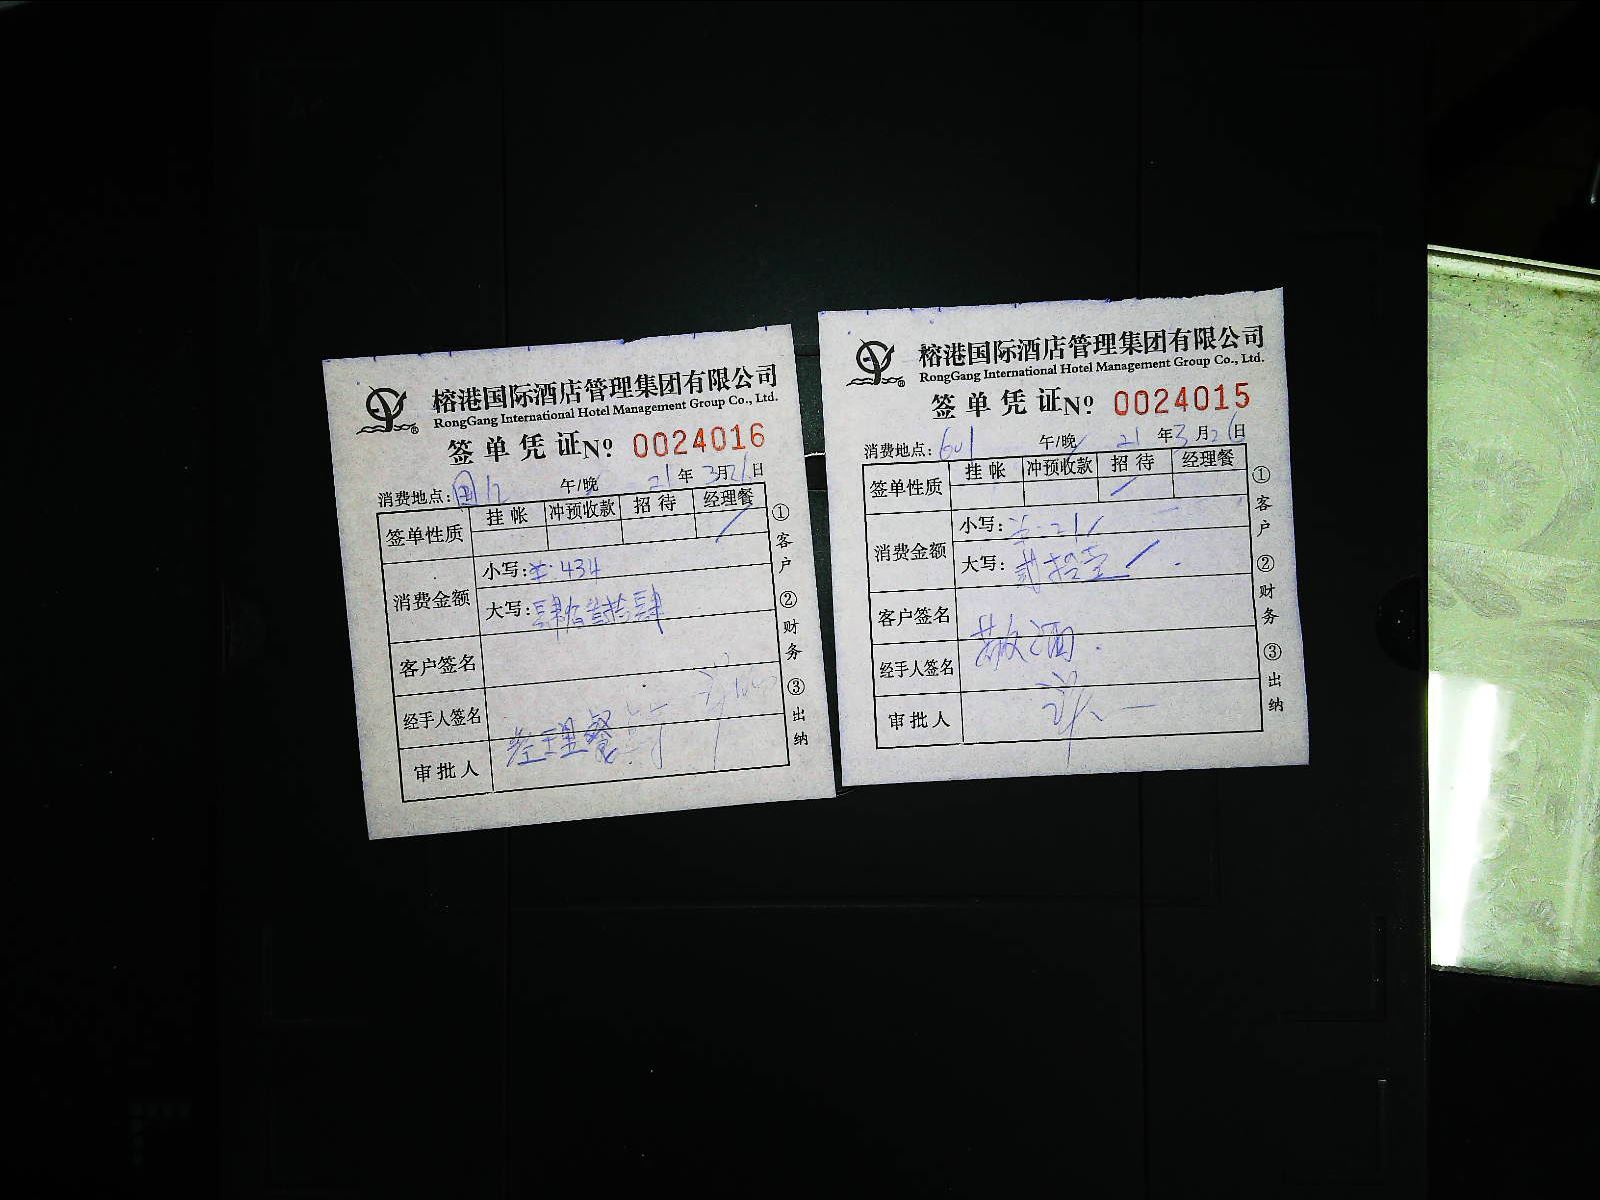 榕港国际酒店管理集团有限公司
RongGang International Hotel Management Group Co., Ltd.
签单凭证 Nº 0024016
消费地点: 午/晚 21年3月26日
签单性质 挂帐 冲预收款 招待 经理餐
消费金额
小写:¥:434
大写:肆佰叁拾肆
客户签名
经手人签名
经理餐
审批人
①客户 ②财务 ③出纳
榕港国际酒店管理集团有限公司
RongGang International Hotel Management Group Co., Ltd.
签单凭证 Nº 0024015
消费地点:601 午/晚 21年3月26日
签单性质 挂帐 冲预收款 招待 经理餐
消费金额
小写:¥:21/
大写:贰拾壹
客户签名
敬酒
经手人签名
审批人
①客户 ②财务 ③出纳